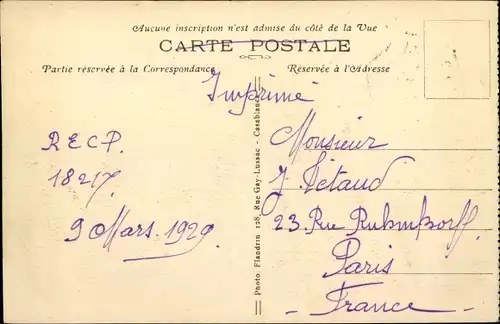 Aucune inscription n'est admise du côté de la Vue
CARTE POSTALE
Partie réservée à la Correspondance
Réservée à l'Adresse
Imprimé
R E C P.
18217
9 Mars. 1929
Photo. Flandrin 128, Rue Gay-Lussac - Casablanca
Monsieur
J. Létaud
23. Rue
Paris
- France -